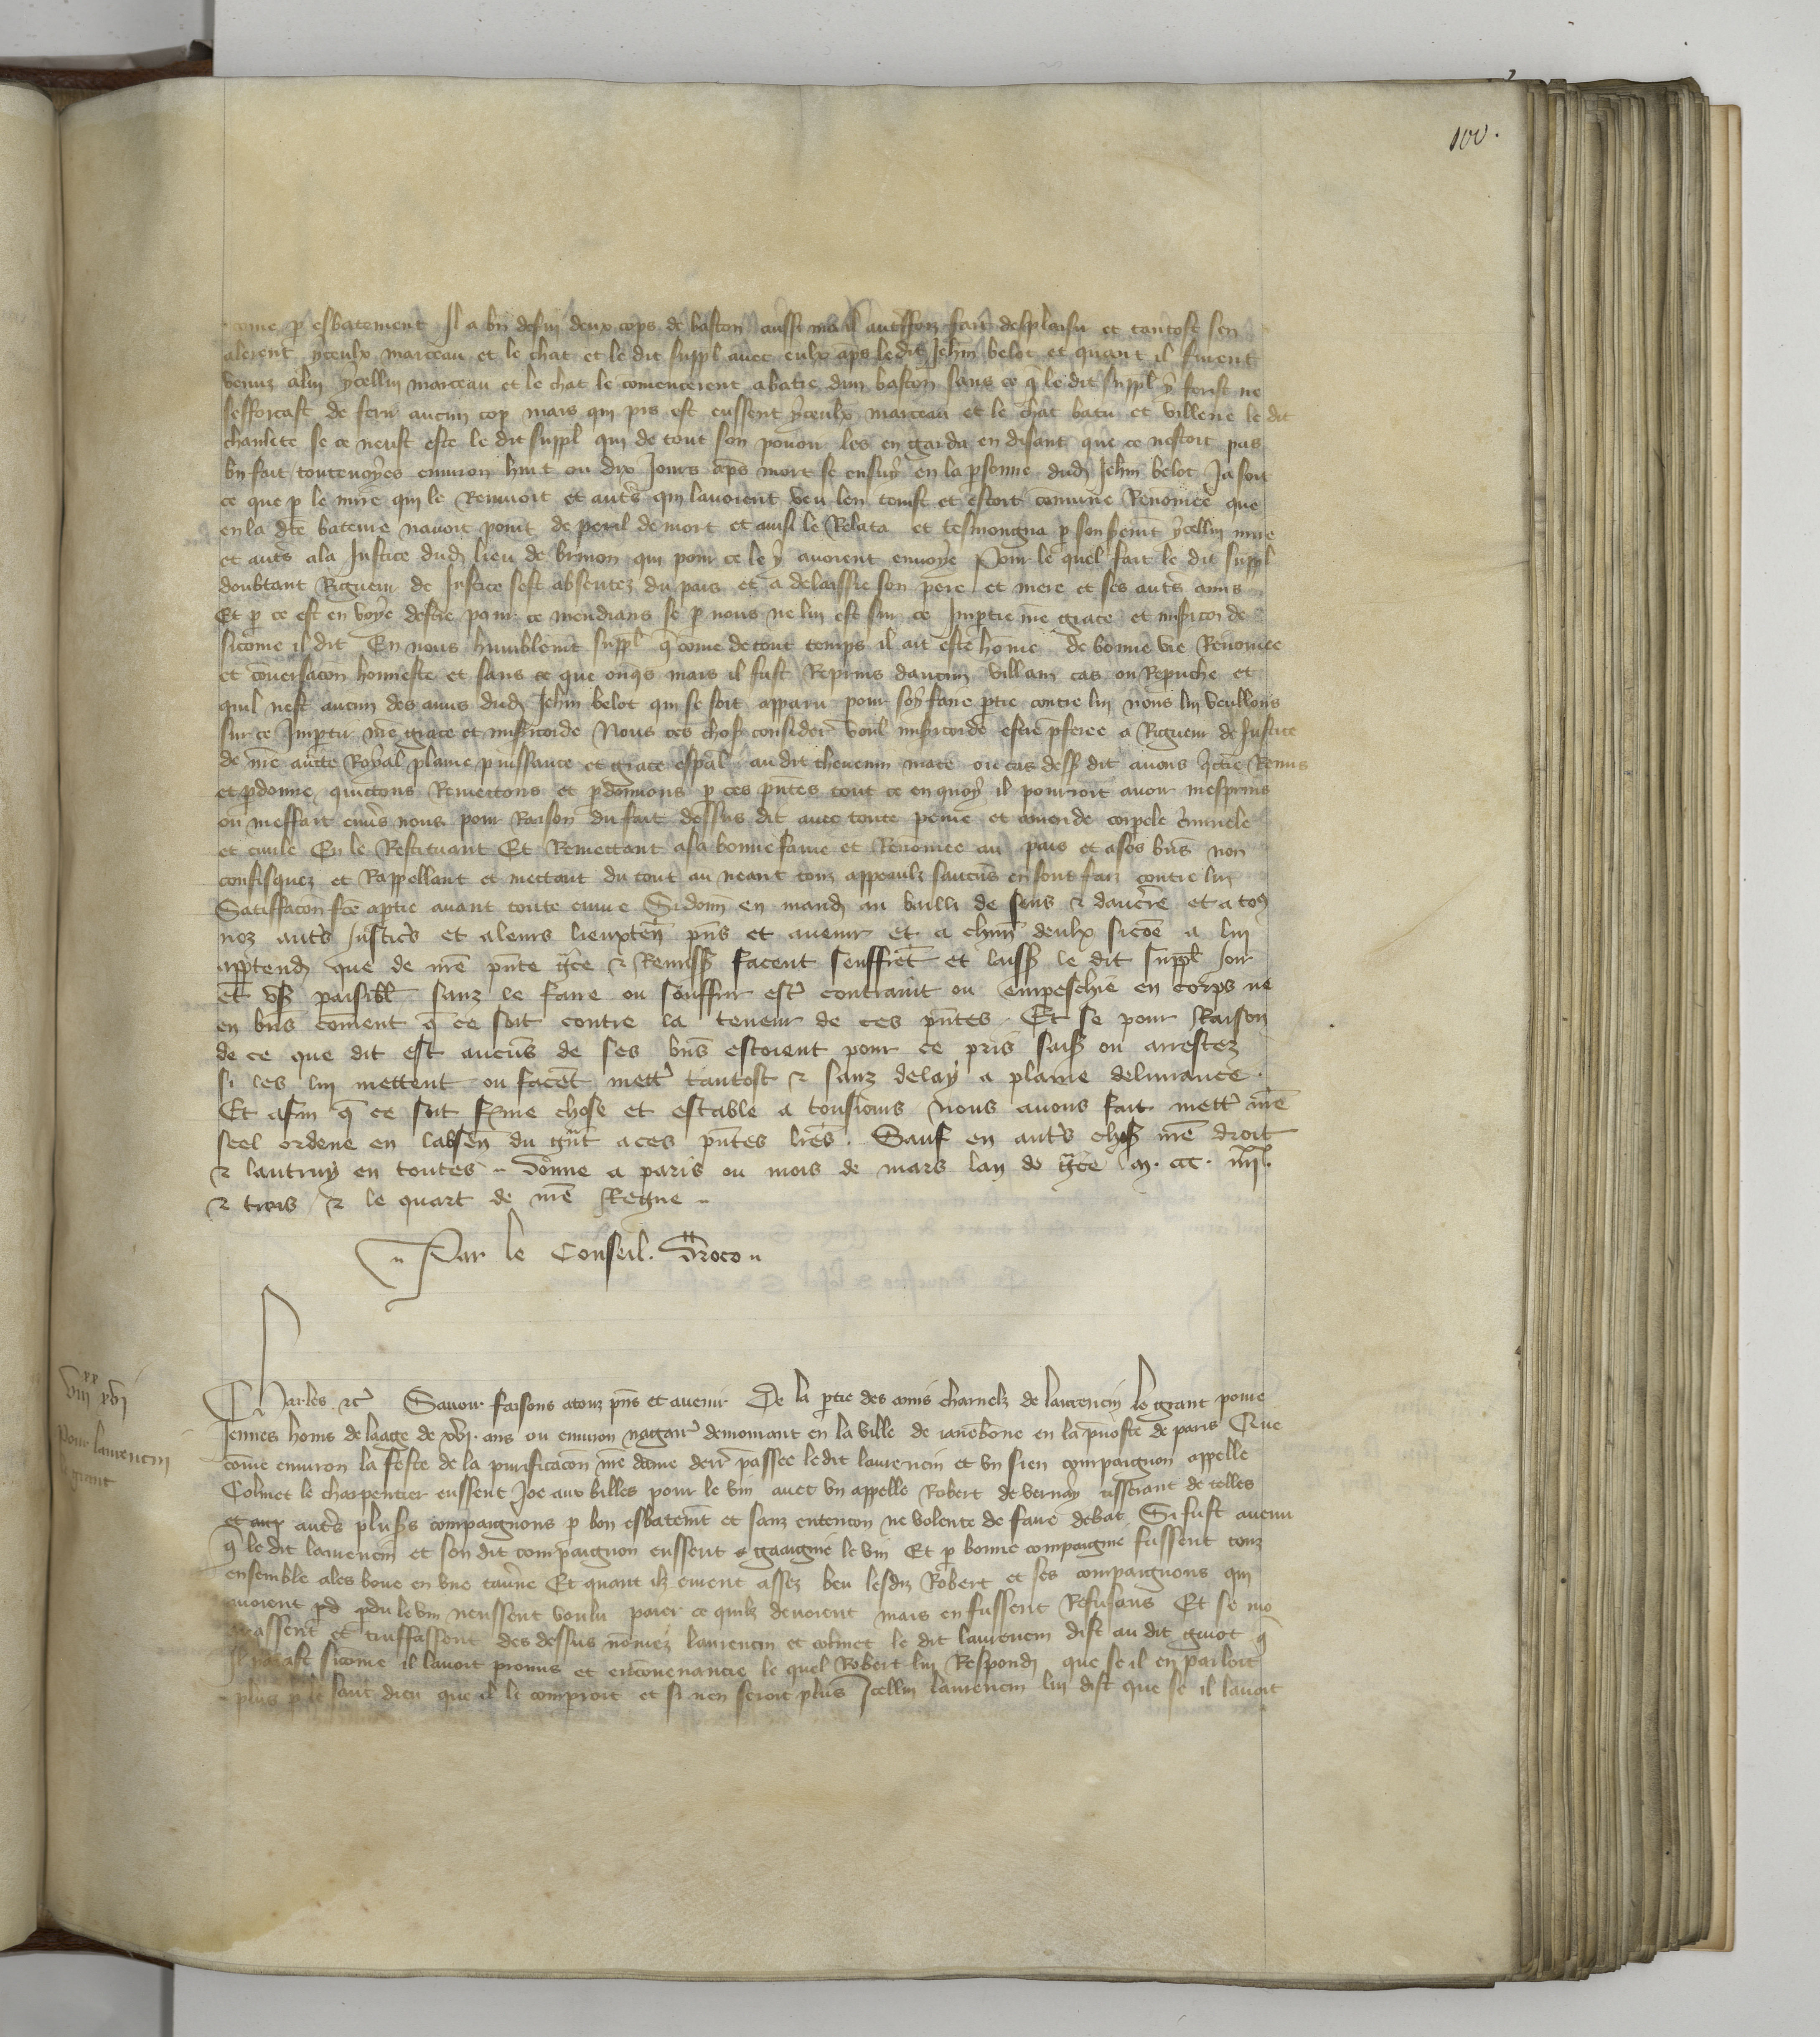 100.
come p esbatement Il a bn deſſ deux cops de baston auſſi ma il autreffoiz fait desplaisir et tantost sen
alerent yceulx marceau et le chat et le dit suppl avec eulx aps le dit Jehn belot et quant il furent
venuz a lui ycellui marceau et le chat le comencerent a batre dun baston sans ce q le dit suppl y ferist ne
sefforcast de ferir aucun cop mais qui pis est eussent yceulx marceau et le chat batu et villene le dit
se ce neust este le dit suppl qui de tout son povoir les en garda en disant que ce nestoit pas
bn fait toutevoyes environ huit ou dix Jours aps mort se ensuy en la psonne dud Jehn belot Ja soit
ce que p le mire qui le Remuoit et auts qui lavoient veu len tenist et estoit comune Renomee que
en la dte bateure navoit point de peril de mort et ainsi le Relata et tesmongna p son seremt ycellui mire
et auts a la Justice dud lieu de brinon qui pour ce le y avoient envoye Pour le quel fait le dit suppl
doubtant Rigueur de Justice sest absentez du pais et a delaissie son pere et mere et ses auts amis
Et p ce est en voye destre pour ce mendians se p nous ne lui est sur ce Impartie nre grace et misicorde
sicome il dit En nous humblemt suppl q come de tout temps il ait este home de bonne vie Renomee
et conversacon honneste et sans ce que onqs mais il fust Reprins daucun villain cas ou Repuche et
quil nest aucun des amis dud Jehn belot qui se soit apparu pour soy faire ptie contre lui nous lui veullons
sur ce Impartir nre grace et misicorde Nous ces chos consider voul misicorde estre pferee a Rigueur de Justice
de nre aucte Royal plaine puissance et grace espal au dit thevenin mate ou cas dess dit avons quictie Remis
et pdonne quictons Remectons et pdonnons p ces pntes tout ce en quoy il pourroit avoir mesprins
ou meffait envs nous pour Raison du fait dessus dit avec toute peine et amende corpele criminele
et civile En le Restituant Et Remectant a sa bonne fame et Renomee au pais et a ses bns non
confisquez et Rappellant et mectant du tout au neant touz appeaulx saucuns en sont faiz contre lui
Satiffacon fce a ptie avant toute euvre Si donn en mand au bailli de sens & daucrre et a toz
noz auts Justics et a leurs lieuxten pns et avenir et a chun deulx sicoe a lui
apptend que de nre pnte gce & Remiss facent seuffret et laiss le dit suppl Joir
et us paisibl sanz le faire ou souffrir estr contraint ou empeschie en corps ne
en bns coment q ce soit contre la teneur de ces pntes Et se pour Raison
de ce que dit est aucuns de ses bns estoient pour ce pris saisz ou arrestez
si les lui mettent ou facet mettr tantost & sanz delay a plaine delivrance.
Et afin q ce soit fme chose et estable a tousjours Nous avons fait mettr nre
seel ordene en labsen du gnt a ces pntes lres. Sauf en auts chos nre droit
& lautruy en toutes Donne a paris ou mois de mars lan de gce m. ccc. iiiixx
& trois & le quart de nre Regne
Par le Conseil. Droco
viiixx xvi
Pour laurencin
le grant
Charles &c Savoir faisons a touz pns et avenir De la ptie des amis charnelz de laurencin le grant povre
Jennes homs de laage de xvi. ans ou environ nagairs demourant en la ville de en la pvoste de paris Que
come environ la feste de la purificacon nre dame derr passee le dit laurencin et un sien compaignon appelle
Colinet le charpentier eussent Joe aux billes pour le vin avec un appelle Robert de vernay tisserant de telles
et aux auts plusrs compaignons p bon esbatemt et sanz entencon ne volente de faire debat Si fust avenu
q le dit laurencin et son dit compaignon eussent gaaigne le vin Et p bonne compaignie fussent touz
ensemble ales boire en une taverne Et quant ilz eurent assez beu lesdiz Robert et ses compaignons qui
avoient pd pdu le vin neussent voulu paier ce quilz devoient mais en fussent Refusans Et se mo
quassent et truffassent des dessus nomez laurencin et colinet le dit laurencin dist au dit guiot q
Il paiast sicome il lavoit promis et enconvenancie le quel Robert lui Respond que se il en parloit
plus p le sanc dieu que il le comproit et si nen seroit plus Icellui laurencin lui dist que se il lavoit